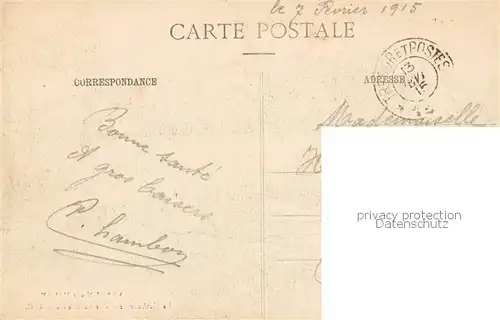 le 7 Février 1915
CARTE POSTALE
TRESOR ET POSTES
13
CORRESPONDANCE
ADRESSE
Mademoiselle
Bonne santé
et gros baisers
P. Chambon
privacy protection
Datenschutz